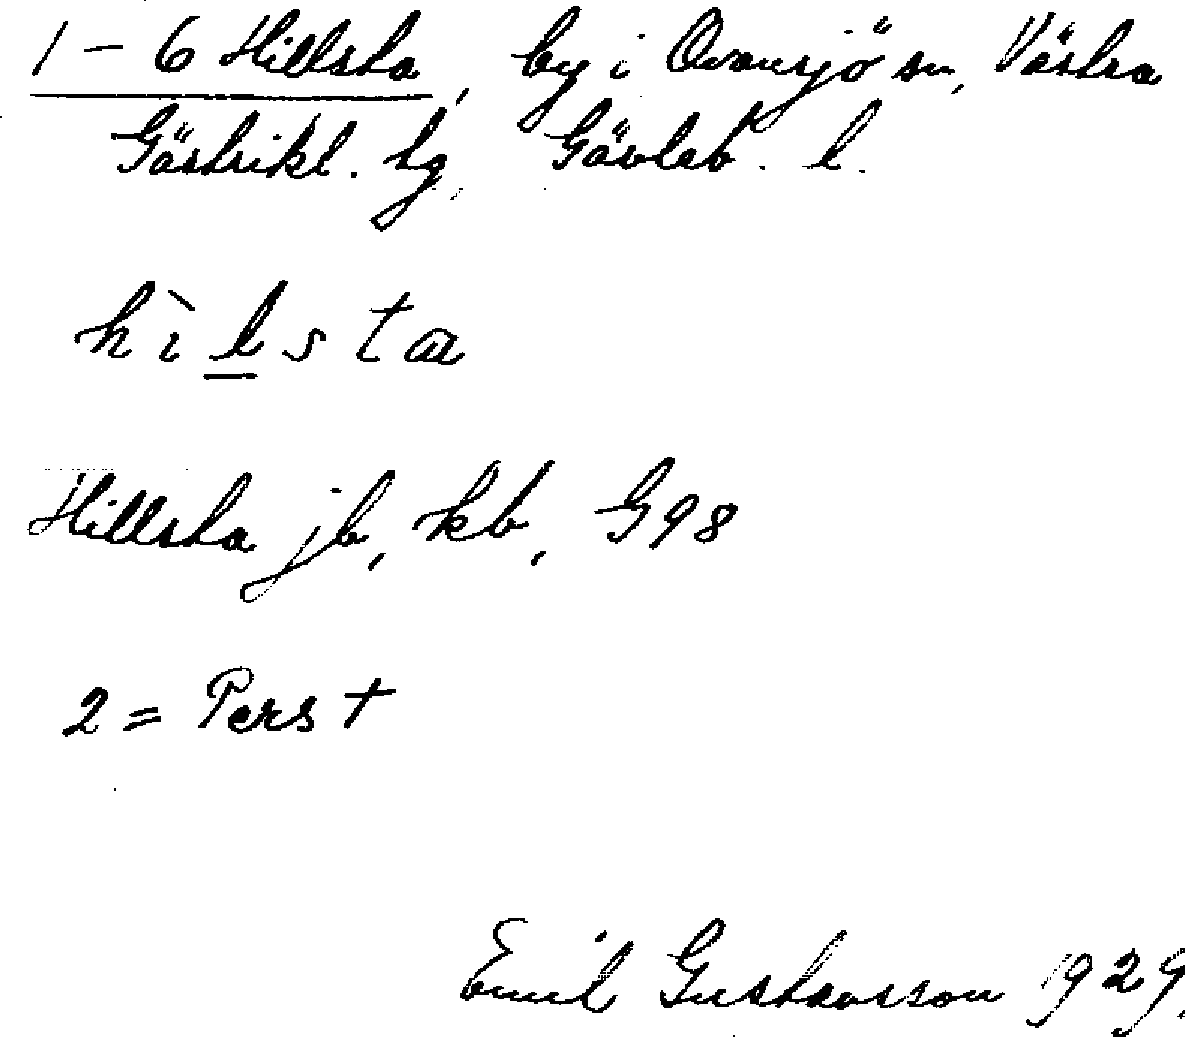 1 – 6 Hillsta, by i Ovansjö sn, Västra
Gästrikl. tg, Gävleb. l.
hìlsta
Hillsta jb, kb, G98
2 = Perst
Emil Gustavsson 1929.